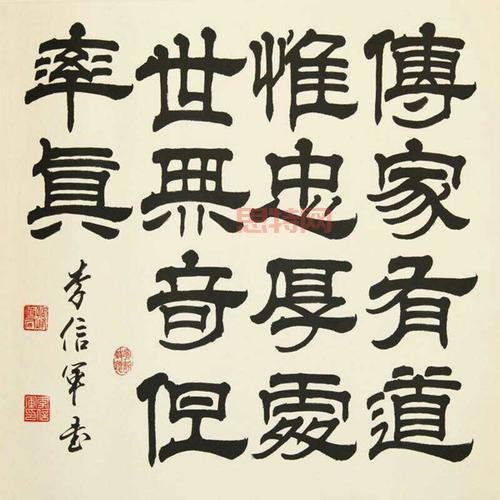 傳家有道
惟忠厚處
世無奇但
率真
李信军书
思特网